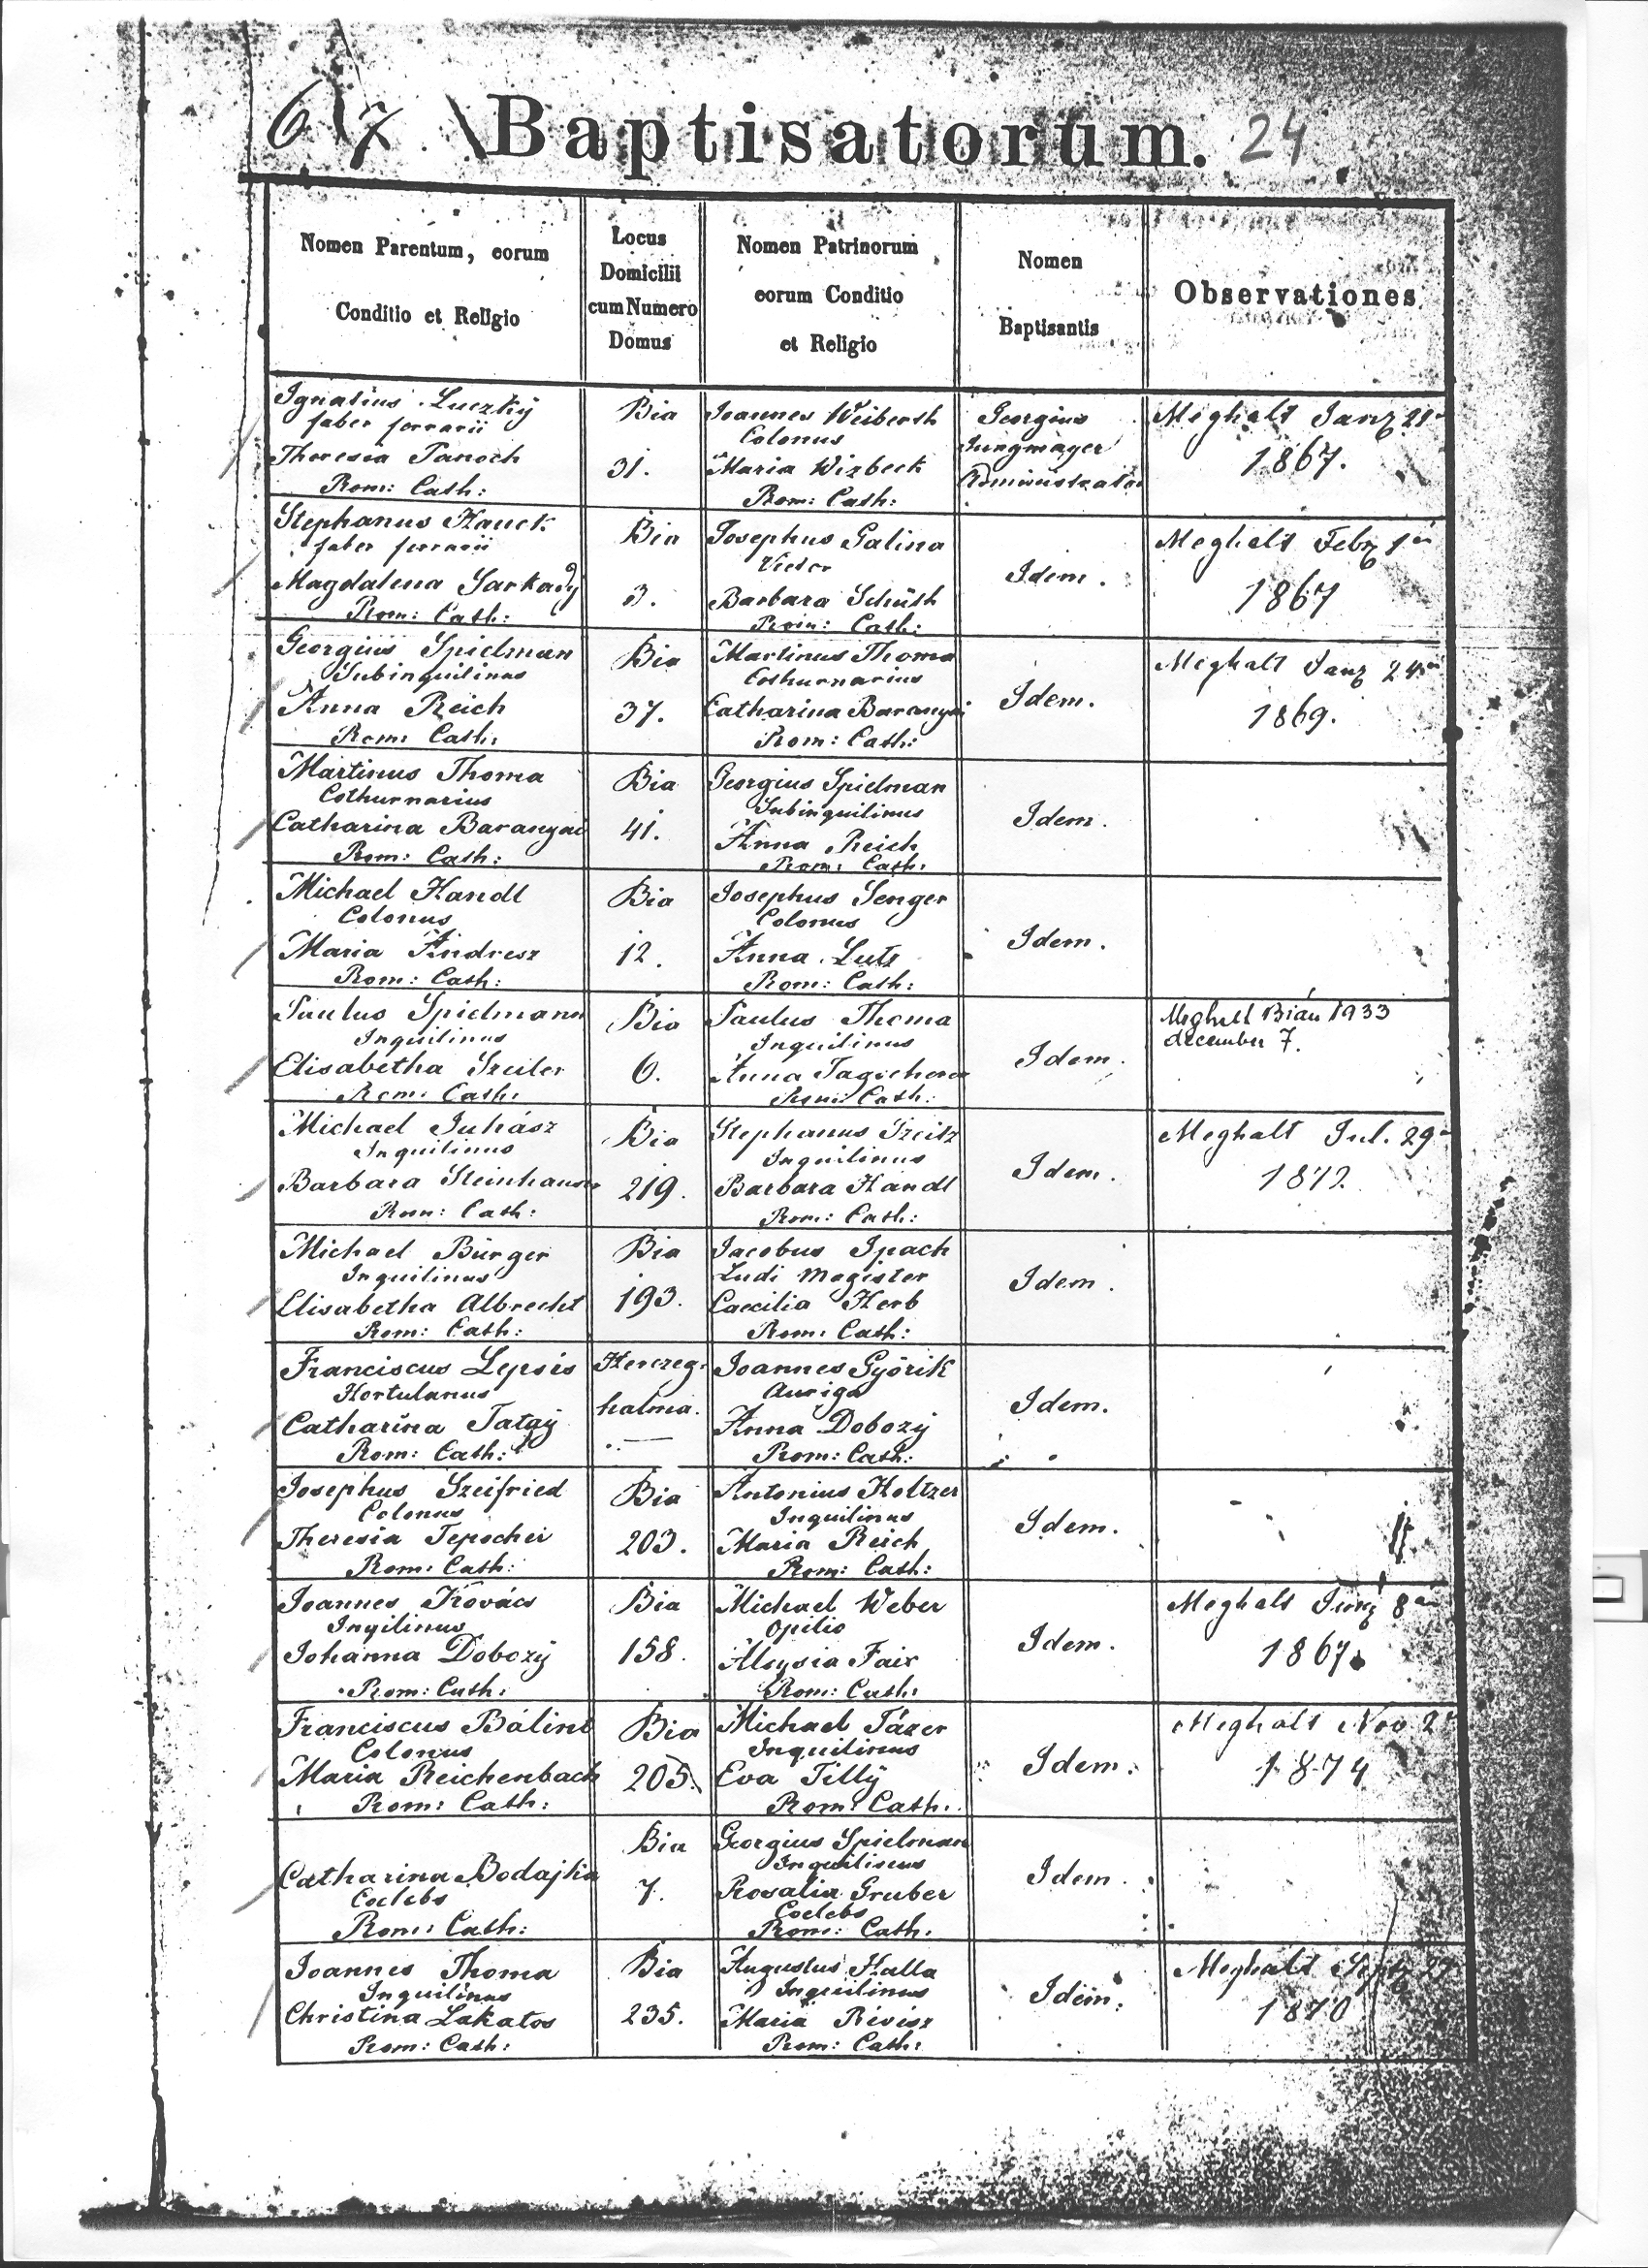 67 Baptisatorum. 24
Nomen Parentum, eorum
Conditio et Religio
Locus
Domicilii
cum Numero
Domus
Nomen Patrinorum
eorum Conditio
et Religio
Nomen
Baptisantis
Observationes
Ignatius Luczký
faber ferrarii
Theresia Panoch
Rom: Cath:
Bia
31.
Joannes Weiberth
Colonus
Maria Wizbeck
Rom: Cath:
Georgius
Jungmayer
Administrator
Meghalt Janr 21
1867.
Stephanus Hauck
faber ferrarii
Magdalena Sarkady
Rom: Cath:
Bia
3.
Josephus Galina
Vietor
Barbara Schüth
Rom: Cath:
Idem.
Meghalt Febr 1én
1867
Georgius Spielman
Subinquilinus
Anna Reich
Rom: Cath:
Bia
37.
Martinus Thoma
Cothurnarius
Catharina Baranyai
Rom: Cath:
Idem.
Meghalt Janr 24én
1869.
Martinus Thoma
Cothurnarius
Catharina Baranyai
Rom: Cath:
Bia
41.
Georgius Spielman
Subinquilinus
Anna Reich
Rom: Cath:
Idem.
Michael Handl
Colonus
Maria Andresz
Rom: Cath:
Bia
12.
Josephus Senger
Colonus
Anna Lutz
Rom: Cath:
Idem.
Paulus Spielmann
Inquilinus
Elisabetha Szeiler
Rom: Cath:
Bia
6.
Paulus Thoma
Inquilinus
Anna
Rom: Cath:
Idem.
Meghalt Bián 1933
december 7.
Michael Juhász
Inquilinus
Barbara Steinhauser
Rom: Cath:
Bia
219.
Stephanus Szeitz
Inquilinus
Barbara Handl
Rom: Cath:
Idem.
Meghalt Jul. 29
1872
Michael Bürger
Inquilinus
Elisabetha Albrecht
Rom: Cath:
Bia
193.
Jacobus Spach
Ludi Magister
Caecilia Herb
Rom: Cath:
Idem.
Franciscus Lepsis
Hortulanus
Catharina Tatay
Rom: Cath:
Herczeg-
halma.
Joannes Györik
Auriga
Anna Dobozy
Rom: Cath:
Idem.
Josephus Szeifried
Colonus
Theresia Tepocher
Rom: Cath:
Bia
203.
Antonius Holtzer
Inquilinus
Maria Reich
Rom: Cath:
Idem.
Joannes Kovács
Inqilinus
Johanna Dobozy
Rom: Cath:
Bia
158.
Michael Weber
Opilio
Aloysia Faix
Rom: Cath:
Idem.
Meghalt 8án
1867.
Franciscus Bálint
Colonus
Maria Reichenbach
Rom: Cath:
Bia
205.
Michael Tázer
Inquilinus
Eva Tilly
Rom: Cath:
Idem.
Meghalt Nov 2
1874
Catharina Bodajka
Coelebs
Rom: Cath:
Bia
7.
Georgius Spielman
Inquilinus
Rosalia Gruber
Coelebs
Rom: Cath:
Idem.
Joannes Thoma
Inquilinus
Christina Lakatos
Rom: Cath:
Bia
235.
Augustus Halla
Inquilinus
Maria Révész
Rom: Cath:
Idem.
Meghalt Septr 27
1870